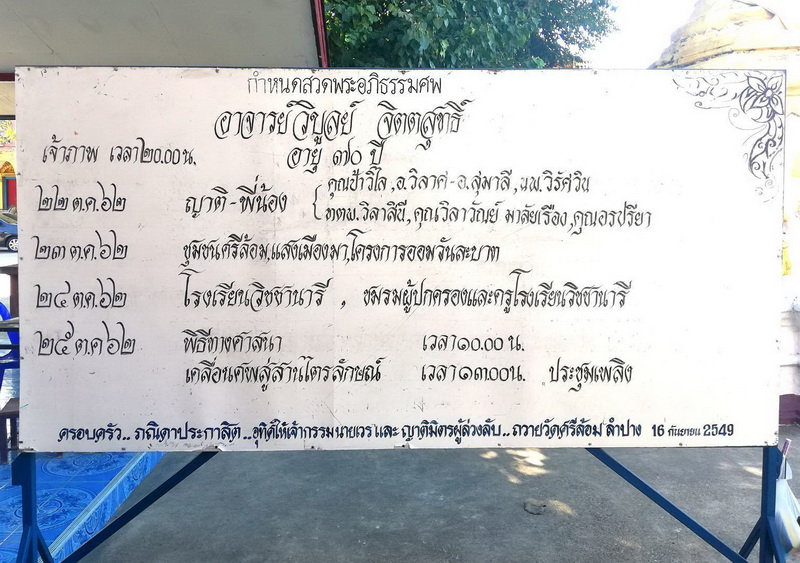 กำหนดสวดพระอภิธรรมศพ
อาจารย์วิบูลย์ จิตตสุทธิ์
เจ้าภาพ เวลา๒๐.๐๐น. อายุ ๗๐ ปี
๒๒ ต.ค.๖๒ ญาติ-พี่น้อง { คุณป้าวิไล,อ.วิลาศ-อ.สุมาลี,นพ.วิรัศวิน
ทตพ.วิลาสินี,คุณวิลาวัณย์ มาลัยเรือง,คุณอรปรียา
๒๓ ต.ค.๖๒ ชุมชนศรีล้อม,แสงเมืองมา,โครงการออมวันละบาท
๒๔ ต.ค.๖๒ โรงเรียนวิชชานารี , ชมรมผู้ปกครองและครูโรงเรียนวิชชานารี
๒๕ ต.ค๖๒ พิธีทางศาสนา เวลา๑๐.๐๐ น.
เคลื่อนศพสู่สานไตรลักษณ์ เวลา๑๓.๐๐น. ประชุมเพลิง
ครอบครัว.. ภณิดาประกาสิต.. อุทิศให้เจ้ากรรมนายเวร และ ญาติมิตรผู้ล่วงลับ.. ถวายวัดศรีล้อม ลำปาง 16 กันยายน 2549